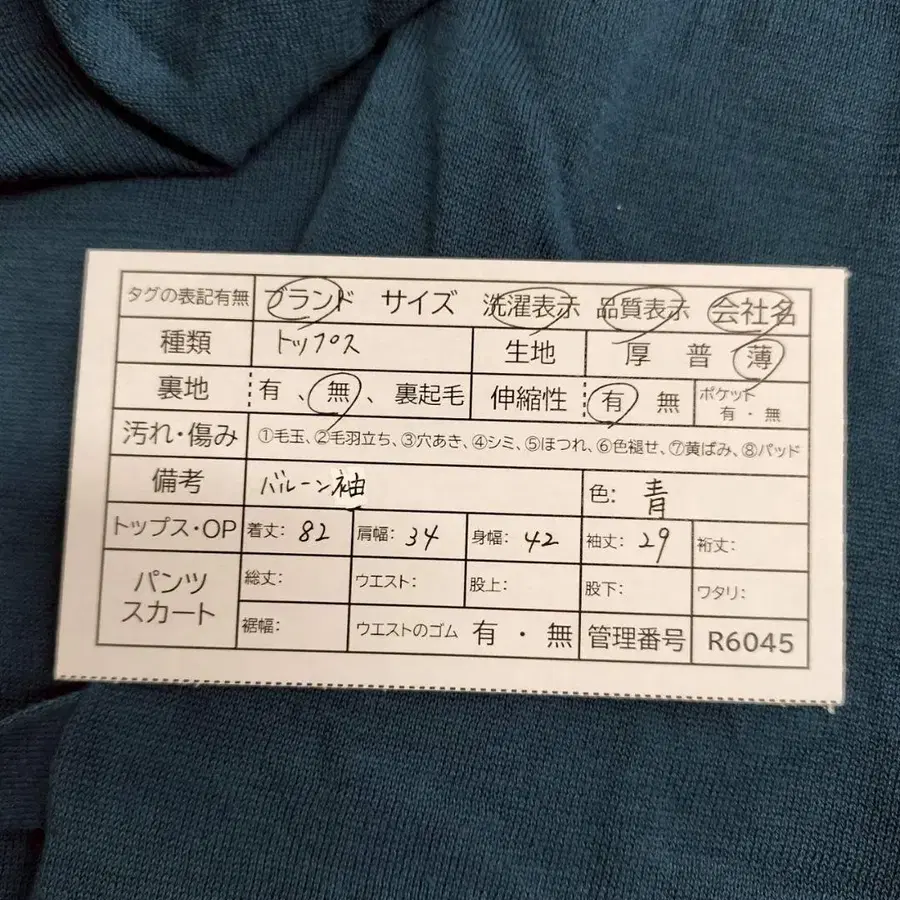 タグの表記有無 ブランド サイズ 洗濯表示 品質表示 会社名
種類 トップス 生地 厚 普 薄
裏地 有、無、裏起毛 伸縮性 有 無 ポケット 有・無
汚れ・傷み ①毛玉、②毛羽立ち、③穴あき、④シミ、⑤ほつれ、⑥色褪せ、⑦黄ばみ、⑧パッド
備考 バルーン袖 色: 青
トップス・OP 着丈: 82 肩幅: 34 身幅: 42 袖丈: 29 裄丈:
パンツ スカート 総丈: ウエスト: 股上: 股下: ワタリ:
裾幅: ウエストのゴム 有・無 管理番号 R6045